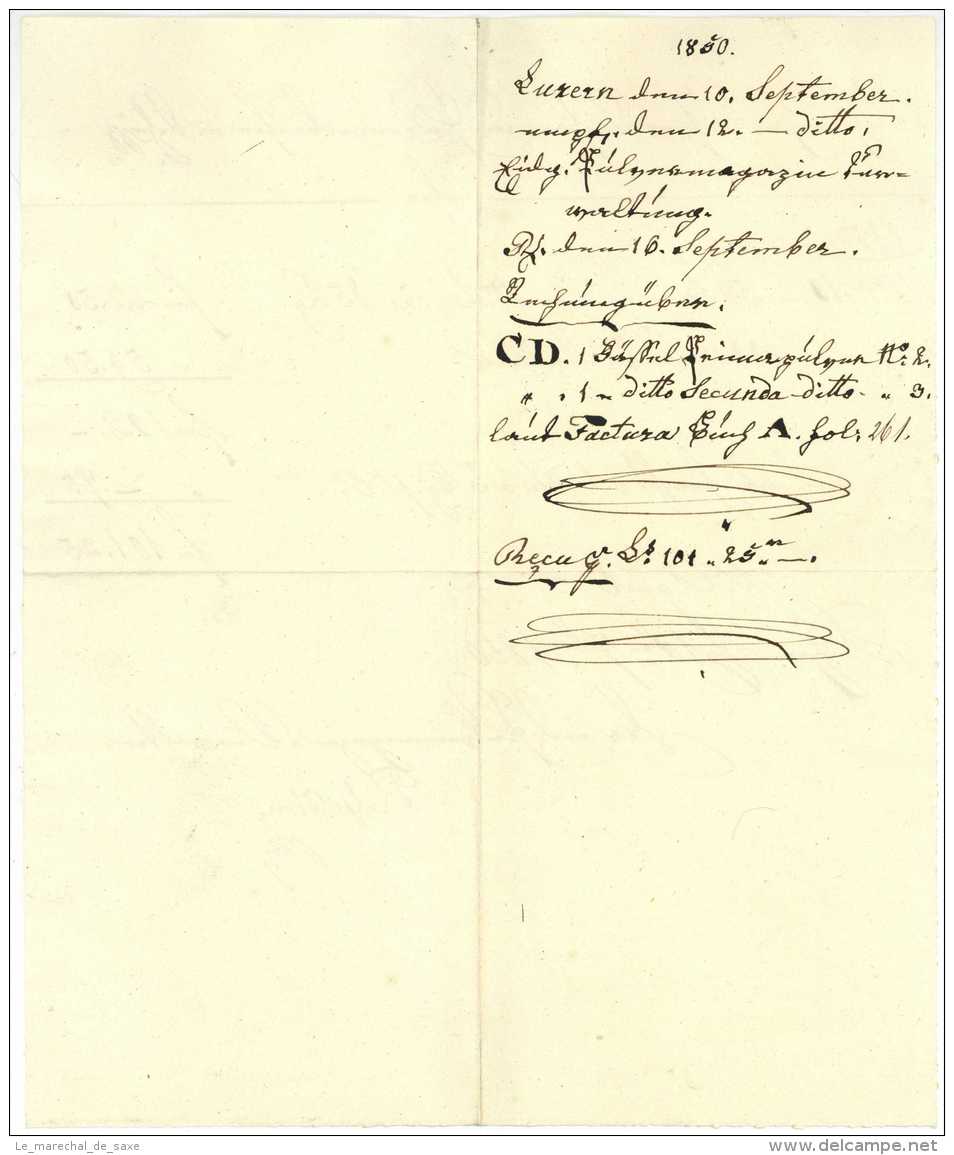 1850.
Luzern den 10. September.
empf. den 12. — ditto.
Eidg. Pulvermagazin Ver=
waltung.
den 16. September.
CD. 1 Fässel Prima pulver No. 2.
" . 1 " ditto Secunda ditto " 3.
laut Factura Buch A. fol. 261.
Recu 101 " 25 " —.
Le_marechal_de_saxe
delcampe.net